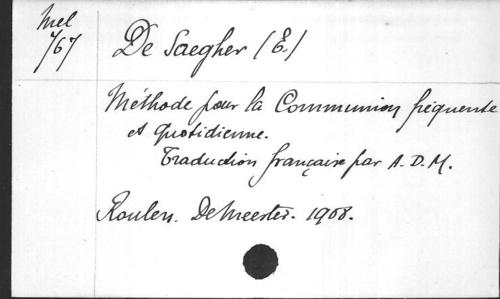 Mel
767
De Saegher (E.)
Méthode pour la Communion fréquente
et quotidienne.
Traduction française par A. D. M.
Roulers. De Meester. 1908.